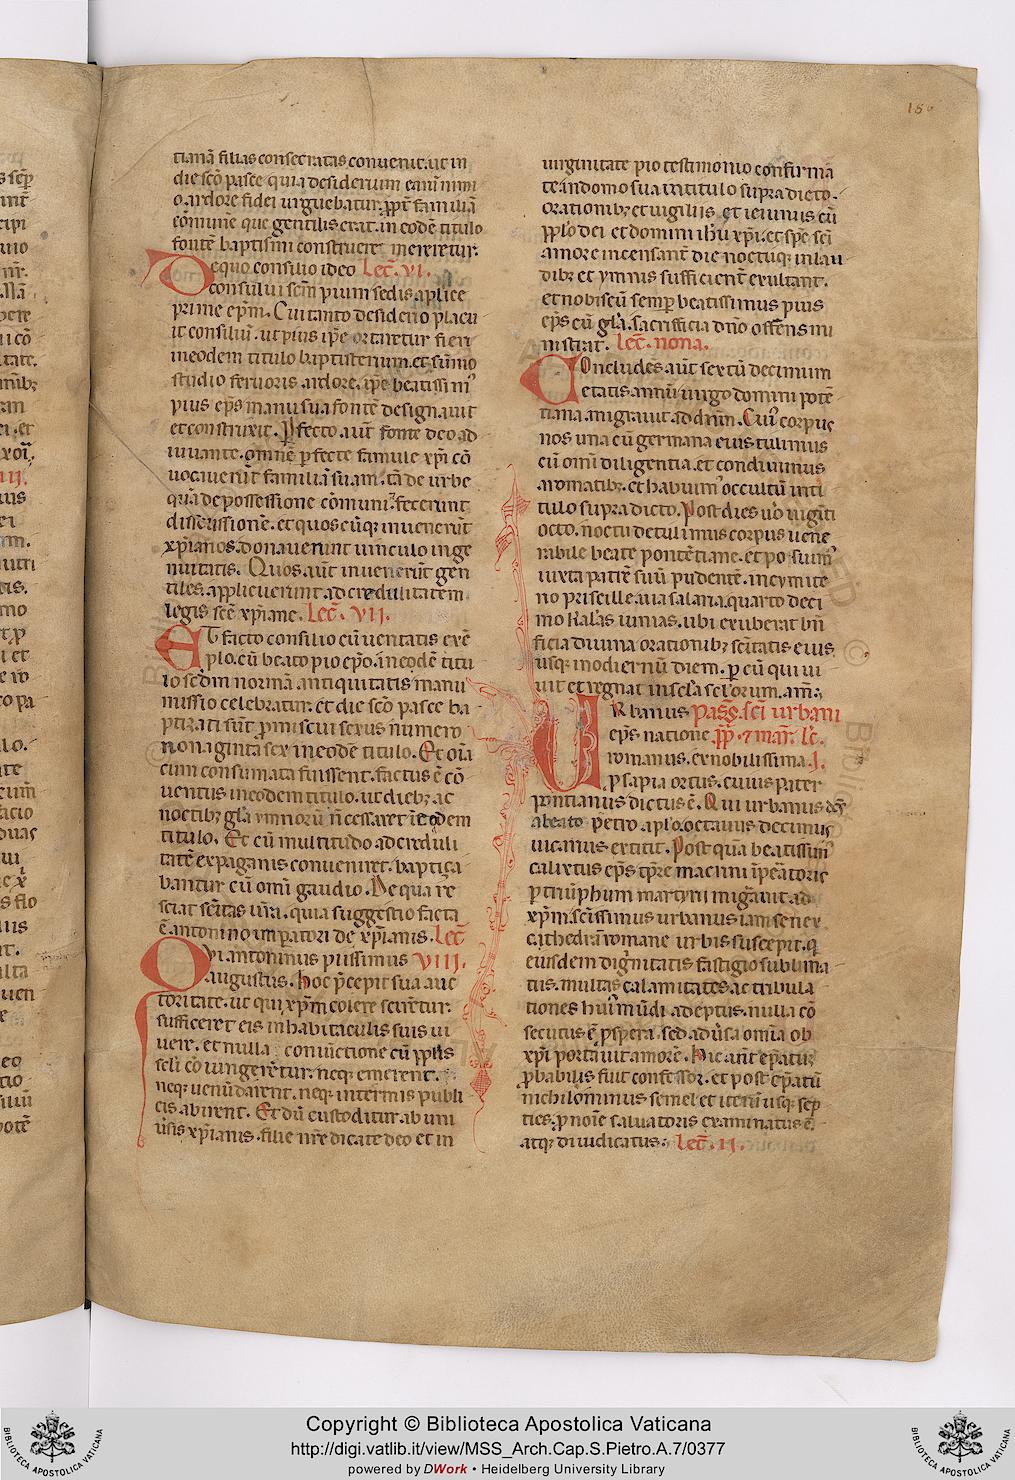 186
tianā filias consecratas convenit. ut in
die scō pasce quia desiderium eaꝝ nimi
o. ardore fidei urguebatur. ꝓpt̄ familiā
cōmunē que gentilis erat. in eodē titulo
fontē baptismi construere mererētur.
De quo consilio ideo Lec̄. VI.
consului scm̄ pium sedis aplice
prime epm̄. Cui tanto desiderio placu
it consiliū. ut pius ip̄e ortaretur fieri
in eodem titulo baptisterium. et sūmo
studio fervoris ardore. ip̄e beatissimꝰ
pius ep̄s manu sua fontē designavit
et construxit. Perfecto aūt fonte deo ad
iuvante. omnē perfecte famule xp̄i cō
vocaverūt familiā suam. tā de urbe
quā de possessione cōmuni. fecerunt
discussionē. et quos cūqꝫ invenerūt
xp̄ianos. donaverunt vinculo inge
nuitatis. Quos aūt invenerūt gen
tiles. applicuerunt ad credulitatem
legis scē xp̄iane. Lec̄. VII.
Et facto consilio cū veritatis exē
plo. cū beato pio ep̄o. in eodē titu
lo scdm normā antiquitatis manu
missio celebratur. et die scō pasce ba
ptizati sūt promiscui sexus numero
nonaginta sex in eodē titulo. Et oīa
cum consumata fuissent. factus ē cō
ventus in eodem titulo. ut diebꝫ ac
noctibꝫ glā ymnorū n̄ cessaret ī eodem
titulo. Et cū multitudo ad creduli
tatē ex paganis conveniret. baptiça
bantur cū omī gaudio. De qua re
sciat scītas vr̄a. quia suggestio facta
ē antonino imperatori de xp̄ianis. Lec̄
Qui antoninus piissimus VIII.
augustus. hoc p̄cepit sua auc
toritate. ut qui xp̄m colere scirētur.
sufficeret eis in habitaculis suis vi
vere. et nulla convinctione cū pplīs
sclī cōiungerētur. neqꝫ emerent.
neqꝫ venūdarent. neqꝫ in termis publi
cis abirent. Et dū custoditur. ab uni
ūsis xp̄ianis. filie nr̄e dicate deo et in
virginitate pio testimonio confirmā
te. in domo sua in titulo supra dicto.
orationibꝫ et vigiliis et ieiuniis cū
pplo dei et domini ihū xp̄i. et spē scī
amore incensant die noctuqꝫ in lau
dibꝫ et ymnis sufficient exultant.
et nobiscū semper beatissimus pius
ep̄s cū glā. sacrificia dn̄o offens mi
nistrat. Lec̄. nona.
Concludēs aūt sextū decimum
etatis annū virgo domini potē
tiana. migravit ad dn̄m. Cuiꝰ corpus
nos una cū germana eius tulimus
cū omī diligentia. et condivimus
aromatibꝫ. et habuimꝰ occultū inti
tulo supra dicto. Post dies v̄o viginti
octo. noctu detulimus corpus vene
rabile beate pontētiane. et posuimꝰ
iuxta patrē suū pudentē. in cymite
no priscille. via salaria. quarto deci
mo Kalās iunias. ubi exuberat bn̄
ficia divina orationibꝫ scītatis eius
usqꝫ in odiernū diem. per eū qui vi
vit et regnat in scl̄a scl̄orum. am̄.
Urbanus Pass̄. scī urbani
ep̄s natione pp̄ et mar̄. le.
romanus. ex nobilissima .I.
prosapia ortus. cuius pater
pontianus dictus ē. Qui urbanus
a beato petro aplo. octavus decimus
vicarius extitit. Post quā beatissimꝰ
calixtus ep̄s tp̄re macrini īpeātoris
per triūphum martyrii migravit ad
xp̄m. scīssimus urbanus iam senex
cathedrā romane urbis suscepit. q
eiusdem dignitatis fastigio sublima
tus. multas calamitates ac tribula
tiones huiꝰ mūdi adeptus. nulla cō
secutus ē prospera. sed adūsa omīa ob
xp̄i portavit amorē. Hic aūt ep̄atuꝫ
probabilis fuit confessor. et post ep̄atū
nichilominus semel et iterū usqꝫ sep
ties. pro noīe salvatoris examinatus ē
atqꝫ diiudicatus. Lec̄. II.
Copyright © Biblioteca Apostolica Vaticana
http://digi.vatlib.it/view/MSS_Arch.Cap.S.Pietro.A.7/0377
powered by DWork • Heidelberg University Library
BIBLIOTECA APOSTOLICA VATICANA
BIBLIOTECA APOSTOLICA VATICANA